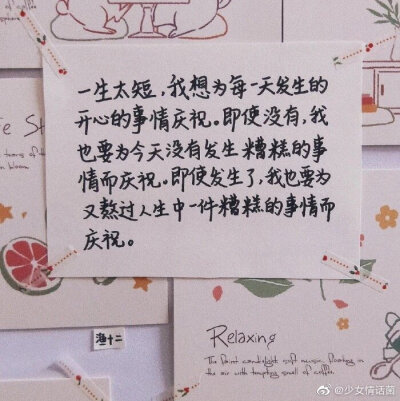 of coffee
一生太短，我想为每一天发生的
开心的事情庆祝。即使没有，我
也要为今天没有发生糟糕的事
情而庆祝。即使发生了，我也要为
又熬过人生中一件糟糕的事情而
庆祝。
渔十二
Relaxing
The faint candlelight soft music floating in
the air with tempting smell of coffee.
@少女情话菌